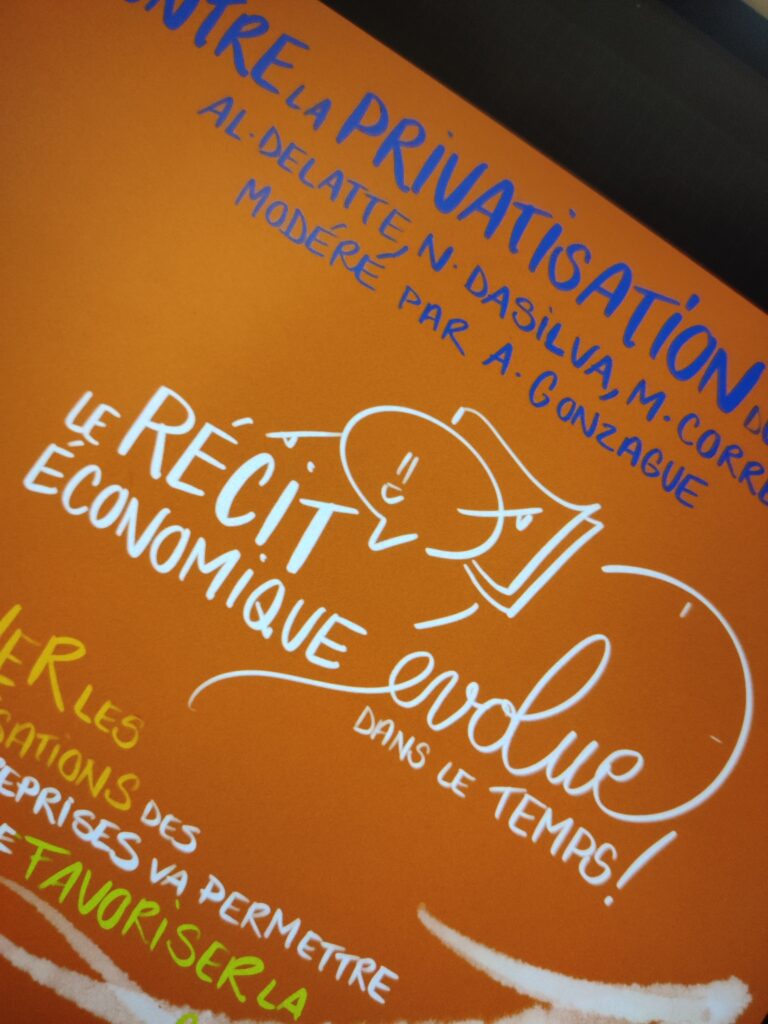 CONTRE LA PRIVATISATION
AL. DELATTE, N. DASILVA, M. CORRE
MODÉRÉ PAR A. GONZAGUE
LE RÉCIT
ÉCONOMIQUE évolue
DANS LE TEMPS!
LES
SATIONS DES
REPRISES VA PERMETTRE
FAVORISER LA